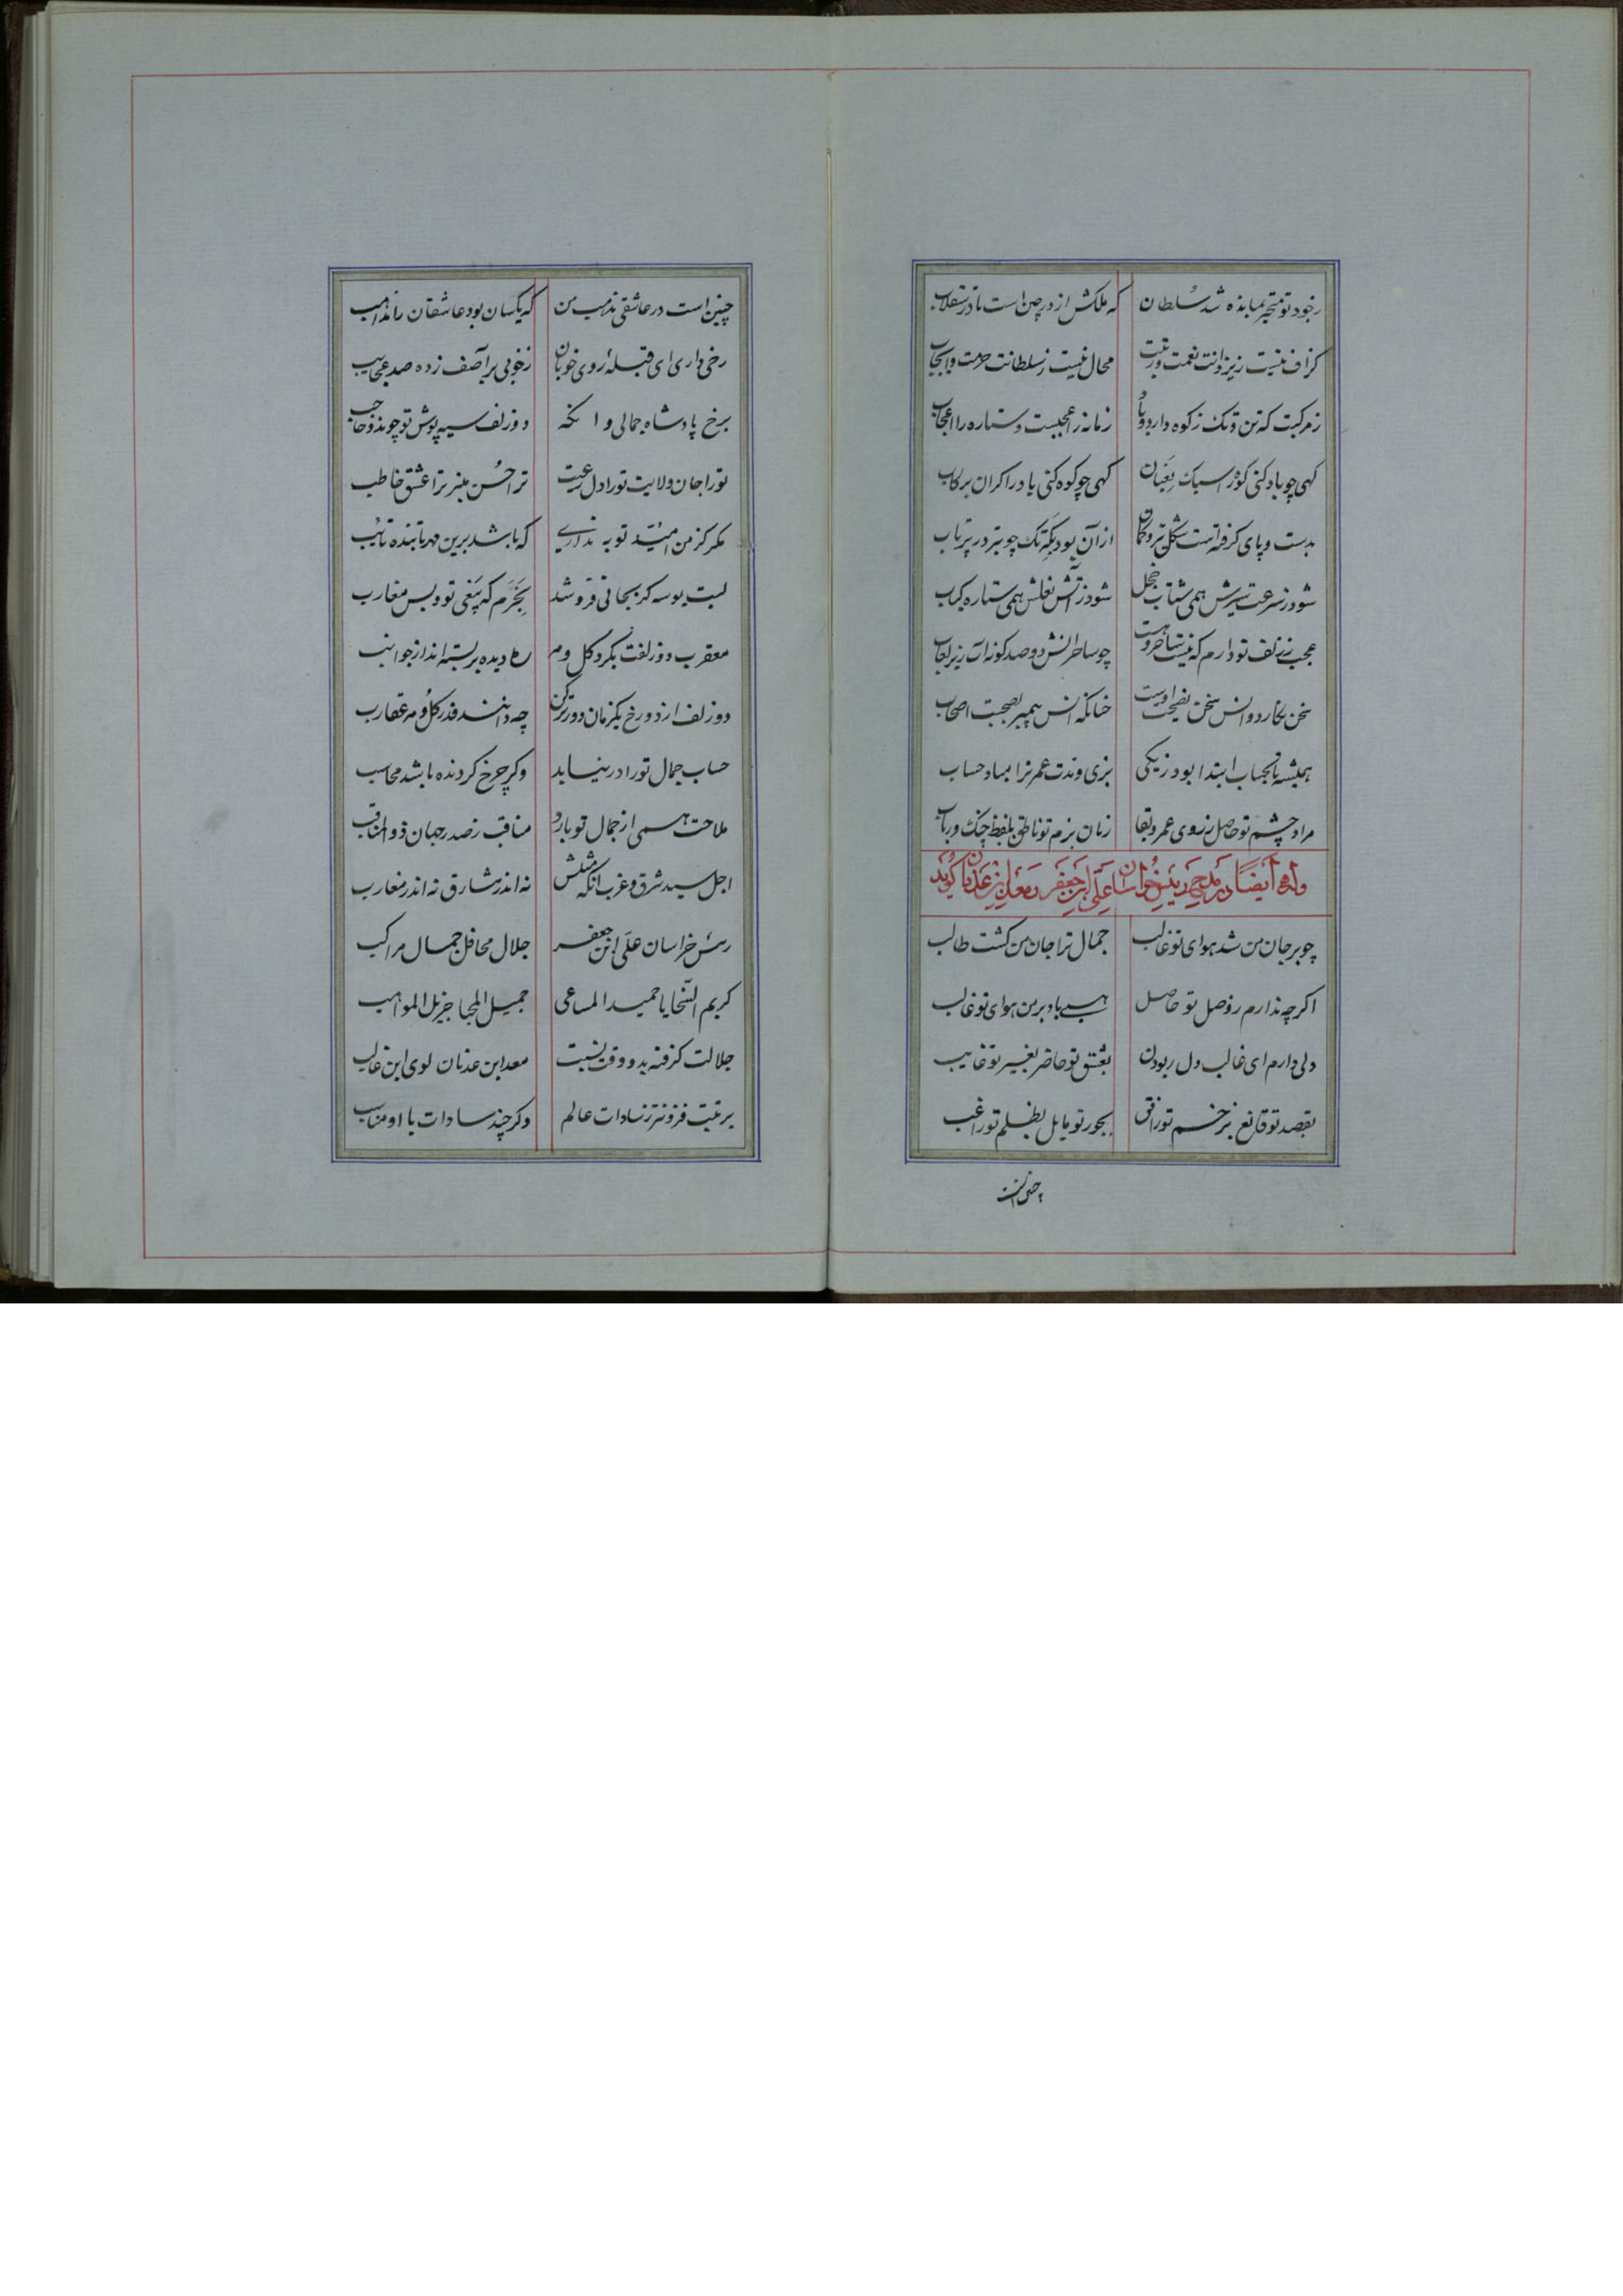 زجود تو متحیر بمانده شد سلطان که ملکش از در چین است تا در سقلاب
گزاف نیست ز یزدانت نعمت و رتبت محال نیست ز سلطانت حرمت و ایجاب
زمرکبت که تن و تک ز کوه دارد و باد زمانه را عجبست و ستاره را اعجاب
گهی چو باد کنی کوه را سبک بعنان گهی چو کوه کنی باد را گران برکاب
بدست و پای گرفته است شکل تیر و کمان از آن بود بکه تک چو تیر در پرتاب
شود ز سرعت سیرش همی شتاب خجل شود ز آتش نعلش همی ستاره کباب
عجب ززلف تو دارم که نیست ساحر و هست چو ساحرانش دو صد گونه زیر لعاب
سخن نگارد و انس سخن نصیحت اوست چنانکه انس پیمبر بصحبت اصحاب
همیشه تا بحساب ابتدا بود ز یکی بزی و مدت عمر ترا مباد حساب
مراد چشم تو حاصل ز روی عمر و بقا زبان بزم تو ناطق بلفظ چنگ و رباب
وله ایضاً در مدح رئیس خراسان علی ابن جعفر معد ابن عدنان گوید
چو بر جان من شد هوای تو غالب جمال ترا جان من گشت طالب
اگرچه ندارم ز وصل تو حاصل همی باد بر من هوای تو غالب
دلی دارم ای غالب دل ربودن بعشق تو حاضر بغیر تو غایب
بقصد تو قانع بزخم تو راضی بجور تو مایل بظلم تو راغب
چنین است
چنین است در عاشقی مذهب من که یکسان بود عاشقان را مذاهب
رخی داری ای قبله روی خوبان ز خوبی بر آصف زده صد عجایب
برخ پادشاه جمالی و انگه دو زلف سیه پوش تو چون دو حاجب
تو را جان ولایت تو را دل رعیت ترا حسن منبر ترا عشق خاطب
مگر کز من امید توبه نداری که باشد برین مهر تابنده تایب
لبت بوسه گر بجانی فروشد بخرم که بیغی تو و بس مغارب
معقرب دو زلفت بگرد گل و مه ره دیده بر بسته‌اند از جوانب
دو زلف از دو رخ یکزمان دورتر کن چه دانند قدر گل و مه عقارب
حساب جمال تو را در نیابد و گر چرخ گردنده باشد محاسب
ملاحت همی از جمال تو بارد مناقب ز صدر جهان ذو المناقب
اجل سید شرق و غرب آنکه مثلش نه اندر مشارق نه اندر مغارب
رئیس خراسان علی ابن جعفر جلال محافل جمال مراکب
کریم السخایا حمید المساعی جمیل المحیا جزیل المواهب
جلالت گرفته بدو وقت نسبت معد ابن عدنان لوی ابن غالب
برتبت فزونتر ز سادات عالم و گر چند سادات با او مناسب